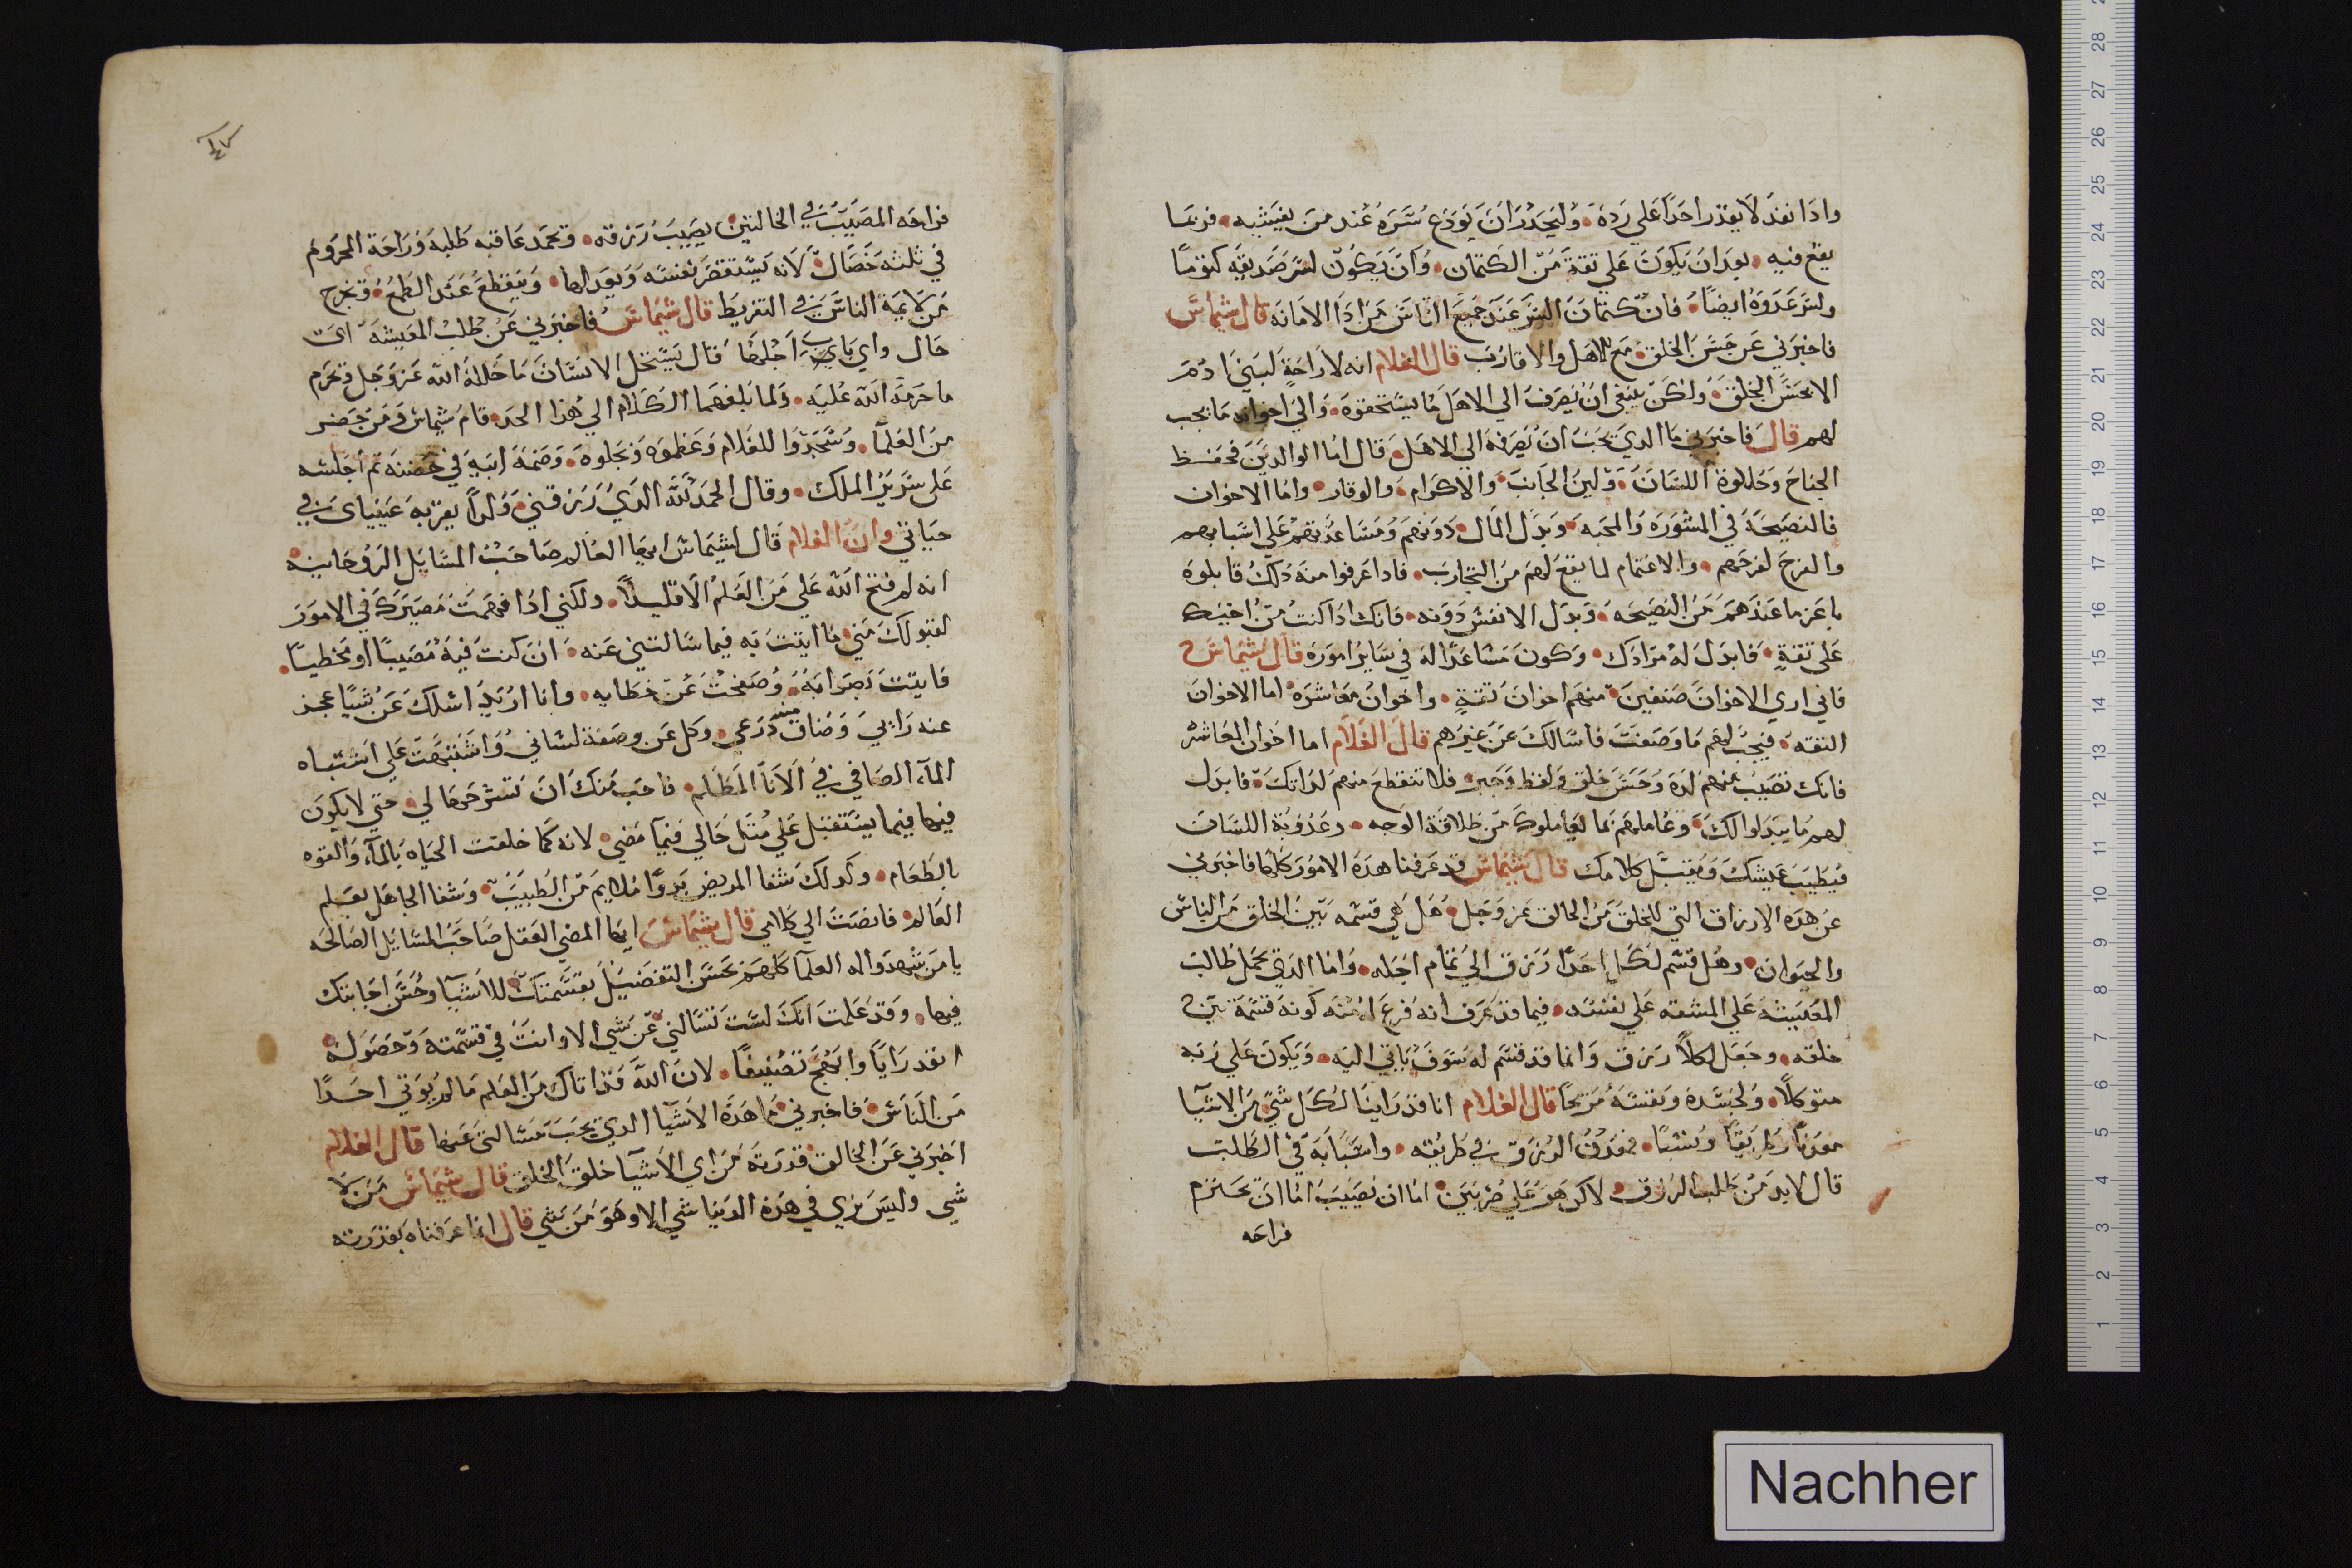 وادا نفد لا يقدر احدا علي رده وليحدر ان يودع سره عند من يفشيه فربما
يقع فيه بعد ان يكون علي تقة من الكتمان وان يكون لسر صديقه كتوما
ولسر عدوه ايضا فان كتمان السر عند جميع الناس من ادا الامانه قال شيماس
فاخبرني عن حسن الخلق مع الاهل والاقارب قال الغلام انه لا راحة لبني ادم
الا بحسن الخلق ولكن ينبغي ان يصرف الي الاهل ما يستحقوه والي اخوانه ما يجب
لهم قال فاخبرني ما الدي يجب ان يصرفه الي الاهل قال اما الوالدين فخفظ
الجناح وحلاوة اللسان ولين الجانب والاكرام والوقار واما الاخوان
فالنصيحة في المشوره والمحبه وبدل المال دونهم ومساعدتهم علي اسبابهم
والفرح لفرحهم والاغتمام لما يقع لهم من التجارب فادا عرفوا منه دلك قابلوه
باعز ما عندهم من النصيحه وبدل الانفس دونه فانك ادا كنت من اخيك
علي تقة فابدل له مرادك وكون مساعدا له في ساير اموره قال شيماس
فاني اري الاخوان صنفين منهم اخوان تقة واخوان معاشره اما الاخوان
التقه فيجب لهم ما وصفت فاسالك عن غيرهم قال الغلام اما اخوان المعاشره
فانك تصيب منهم لدة وحسن خلق ولفظ وخبر فلا تقطع منهم لداتك فابدل
لهم ما يبدلوا لك وعاملهم بما يعاملوك من طلاقة الوجه وعدوبة اللسان
فيطيب عيشك ويقبل كلامك قال شيماس قد عرفنا هده الامور كلها فاخبرني
عن هده الارزاق التي للخلق من الخالق عز وجل هل هي قسمه بين الخلق من الناس
والحيوان وهل قسم لكل احدا رزق الي تمام اجله واما الدي يحمل طالب
المعيشة علي المشقه علي نفسه فيما قد عرف انه فرع منه كونه قسمة بين
خلقه وجعل لكلا رزق وانما قد قسم له سوف ياتي اليه ويكون علي ربه
متوكلا ولجسده ونفسه مريحا قال الغلام انا قد راينا لكل شي من الاشيا
معدنا وطريقا وسببا فمعدن الرزق في طريقه واسبابه في الطلب
قال لابد من طلب الرزق لاكن هو علي ضربين اما ان يصيب اما ان يحترم
فراحه
فراحه المصيب في الخالتين يصيب رزقه وتحمد عاقبه طلبه وراحة المحروم
في ثلثه خصال لانه يستقصر نفسه ويعدلها وينقطع عند الطمع وتخرج
من لايمة الناس في التفريط قال شيماس فاخبرني عن طلب المعيشه اي
حال واي باب اجلها قال يستحل الانسان ما حلله الله عز وجل وتحرم
ما حرمه الله عليه ولما بلغهما الكلام الي هدا الحد قام شيماس ومن حضر
من العلمآ وسجدوا للغلام وعظموه وبجلوه وضمه ابيه في حضنه تم اجلسه
علي سرير الملك وقال الحمد لله الدي رزقني ولدا يقر به عينياي في
حياتي وان الغلام قال لشيماس ايها العالم صاحب المسايل الروحانيه
انه لم فتح الله علي من العلم الا قليلا ولكني ادا فهمت مصيرك في الامور
لقبولك مني ما اتيت به فيما سالتني عنه ان كنت فيه مصيبا او مخطيا
فاتيت بصوابه وصفحت عن خطايه وانا اريد اسلك عن شيا عجز
عنه رايي وضاق منه درعي وكل عن وصفه لساني واشتبهت علي اشتباه
المآء الصافي في الانا المظلم فاحب منك ان تشرحها لي حتي لا يكون
فيها فيما يستقبل علي متل حالي فيما مضي لانه كما خلقت الحياه بالمآء والقوه
بالطعام وكدلك شفا المريض بدوا ملايم من الطبيب وشفا الجاهل بعلم
العالم فانصت الي كلامي قال شيماس ايها المضي العقل صاحب المسايل الصالحه
يا من شهدوا له العلمآ كلهم بحسن التفضيل بقسمتك للاشيآ وحسن اجابتك
فيها وقد علمت انك لست تسالني عن شي الا وانت في قسمته وحصوله
انفد رايا وابهج تضيفا لان الله قد اتاك من العلم ما لم يوتي احدا
من الناس فاخبرني ما هده الاشيآ الدي تحب مسالتي عنها قال الغلام
اخبرني عن الخالق قدرته من اي الاشيآ خلق الخلق قال شيماس من لا
شي وليس يري في هده الدنيا شي الا وهو من شي قال انما عرفناه بقدرته